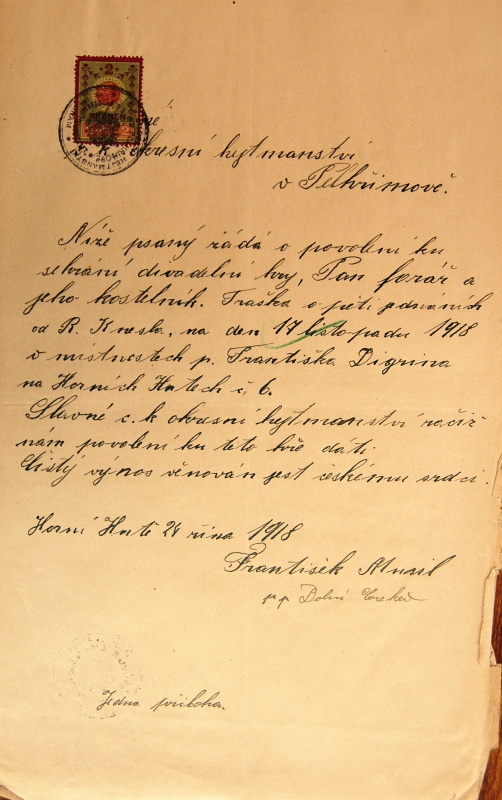 2
okresní hejtmanství
v Pelhřimově.
Níže psaný žádá o povolení ku
sehrání divadelní hry, Pan farář a
jeho kostelník. Fraška o pěti jednáních
od R. Knesla, na den 17 listopadu 1918
v místnostech p. Františka Digrina
na Horních Hutech č. 6.
Slavné c. k okresní hejtmanství račiž
nám povolení ku této hře dáti.
Čistý výnos věnován jest českému srdci.
Horní Hutě 24 října 1918
František Musil
p. p. Dolní Cerekev
Jedna příloha.